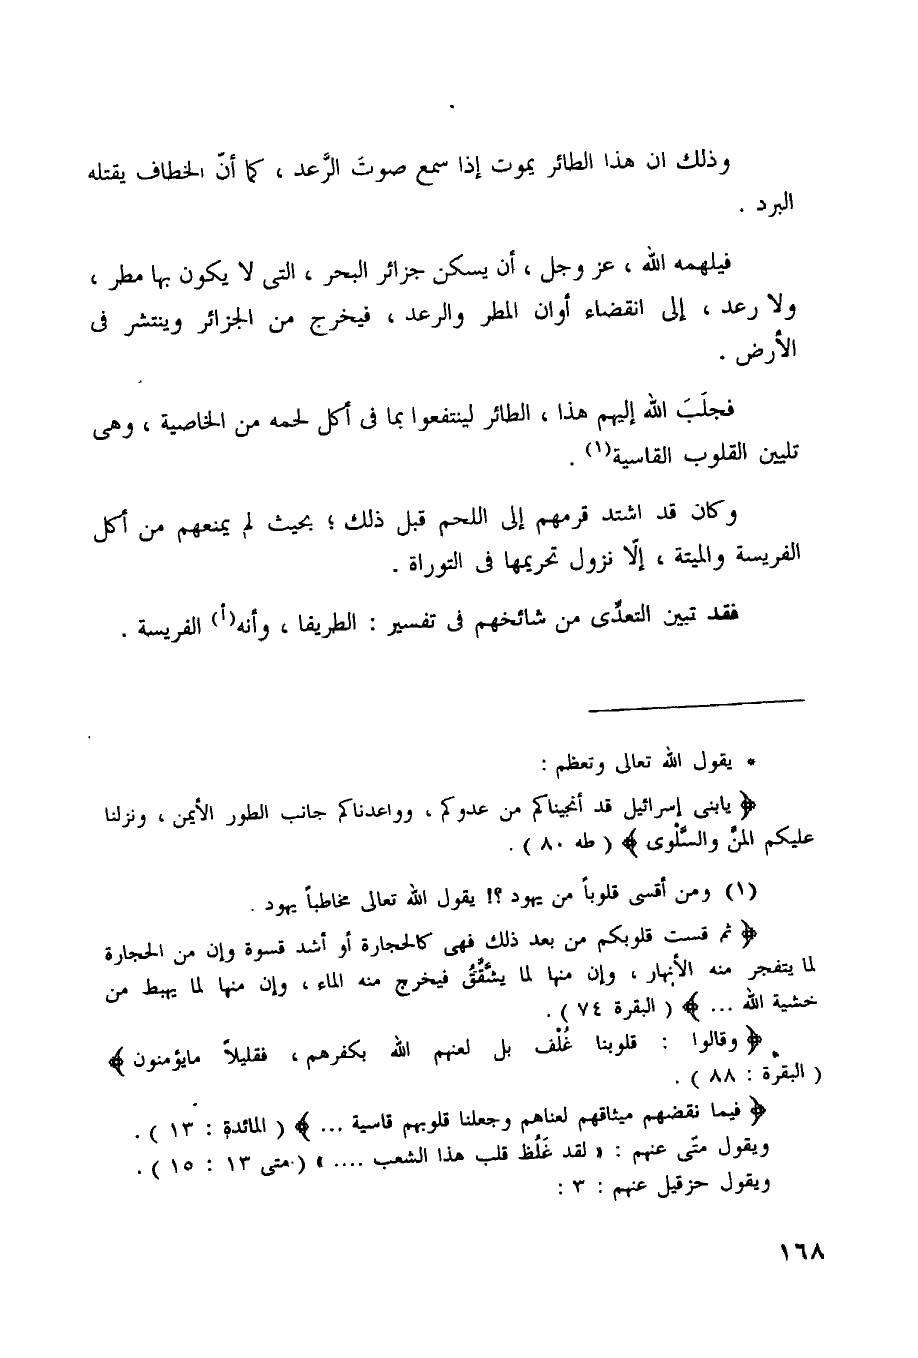 وذلك ان هذا الطائر يموت إذا سمع صوتَ الرَّعد ، كما أنّ الخطاف يقتله
البرد .
فيلهمه الله ، عز وجل ، أن يسكن جزائر البحر ، التى لا يكون بها مطر ،
ولا رعد ، إلى انقضاء أوان المطر والرعد ، فيخرج من الجزائر وينتشر فى
الأرض .
فجلَبَ الله إليهم هذا ، الطائر لينتفعوا بما فى أكل لحمه من الخاصية ، وهى
تليين القلوب القاسية(١) .
وكان قد اشتد قرمهم إلى اللحم قبل ذلك ؛ بحيث لم يمنعهم من أكل
الفريسة والميتة ، إلّا نزول تحريمها فى التوراة .
فقد تبين التعدِّى من شائخهم فى تفسير : الطريفا ، وأنه(أ) الفريسة .
* يقول الله تعالى وتعظم :
﴿ يابنى إسرائيل قد أنجيناكم من عدوكم ، وواعدناكم جانب الطور الأيمن ، ونزلنا
عليكم المنَّ والسَّلْوى ﴾ ( طه ٨٠ ) .
(١) ومن أقسى قلوباً من يهود ؟! يقول الله تعالى مخاطباً يهود .
﴿ ثم قست قلوبكم من بعد ذلك فهى كالحجارة أو أشد قسوة وإن من الحجارة
لما يتفجر منه الأنهار ، وإن منها لما يشَّقَّقُ فيخرج منه الماء ، وإن منها لما يهبط من
خشية الله ... ﴾ ( البقرة ٧٤ ) .
﴿ وقالوا : قلوبنا غُلْف بل لعنهم الله بكفرهم ، فقليلاً مايؤمنون ﴾
( البقرة : ٨٨ ) .
﴿ فيما نقضهم ميثاقهم لعناهم وجعلنا قلوبهم قاسية ... ﴾ ( المائدة : ١٣ ) .
ويقول متّى عنهم : « لقد غَلُظ قلب هذا الشعب .... » ( متى ١٣ : ١٥ ) .
ويقول حزقيل عنهم : ٣ :
١٦٨